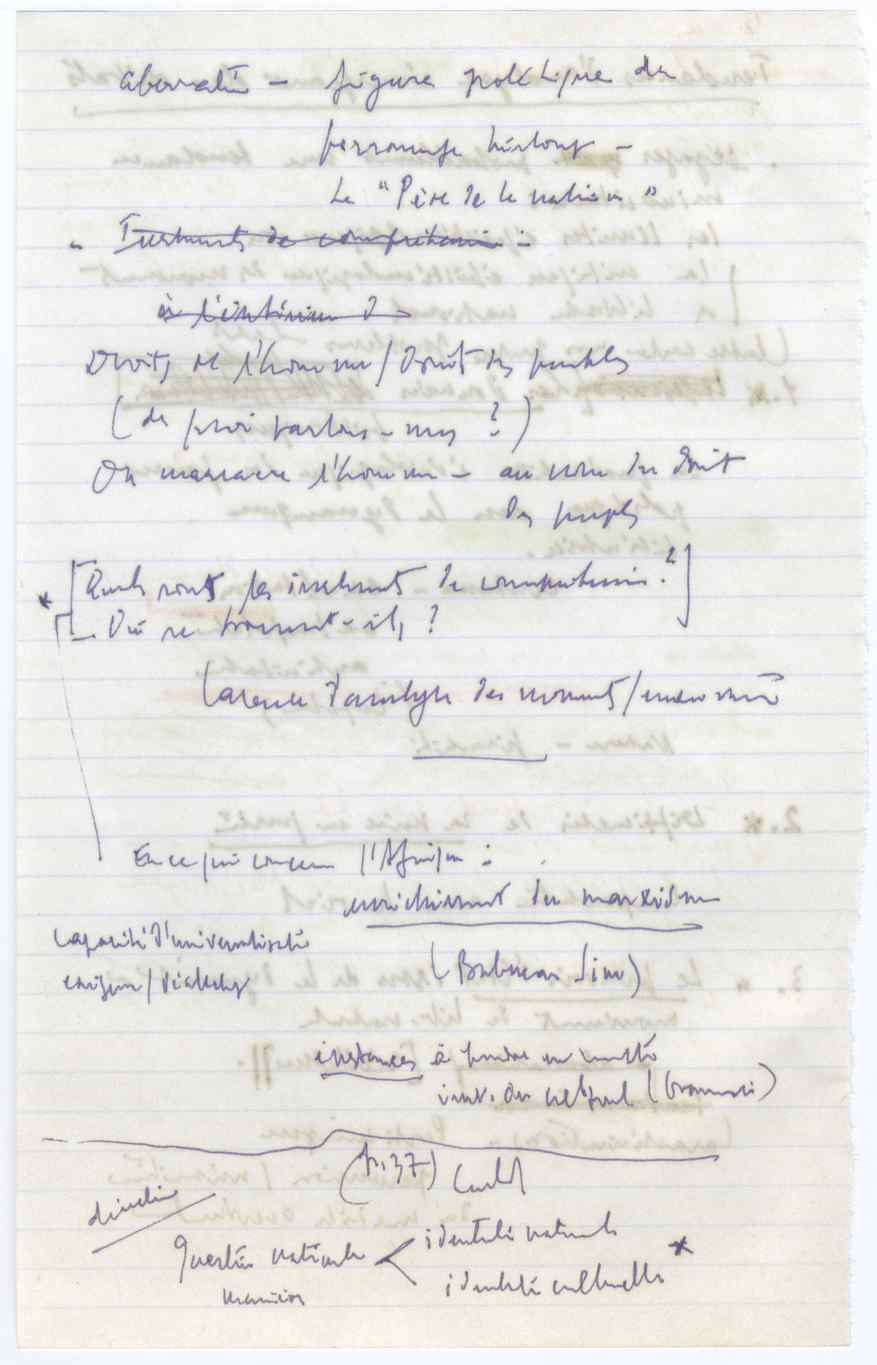 aberration – figure politique du
personnage historique –
Le "Père de la nation"
- Instruments de compréhension :
à l'intérieur
Droits de l'homme / Droit des peuples
(de quoi parlons-nous ?)
On massacre l'homme – au nom du droit
des peuples
* [Quels sont les instruments de compréhension ?]
– Où se trouvent-ils ?
Carence d'analyse des mouvements /
En ce qui concerne l'Afrique :
enrichissement du marxisme
capacité d'universalisation
(Babacar Sine)
instances à prendre en compte
inst. du culturel (Gramsci)
(p. 37) Cabral
Question nationale < identité nationale
identité culturelle *